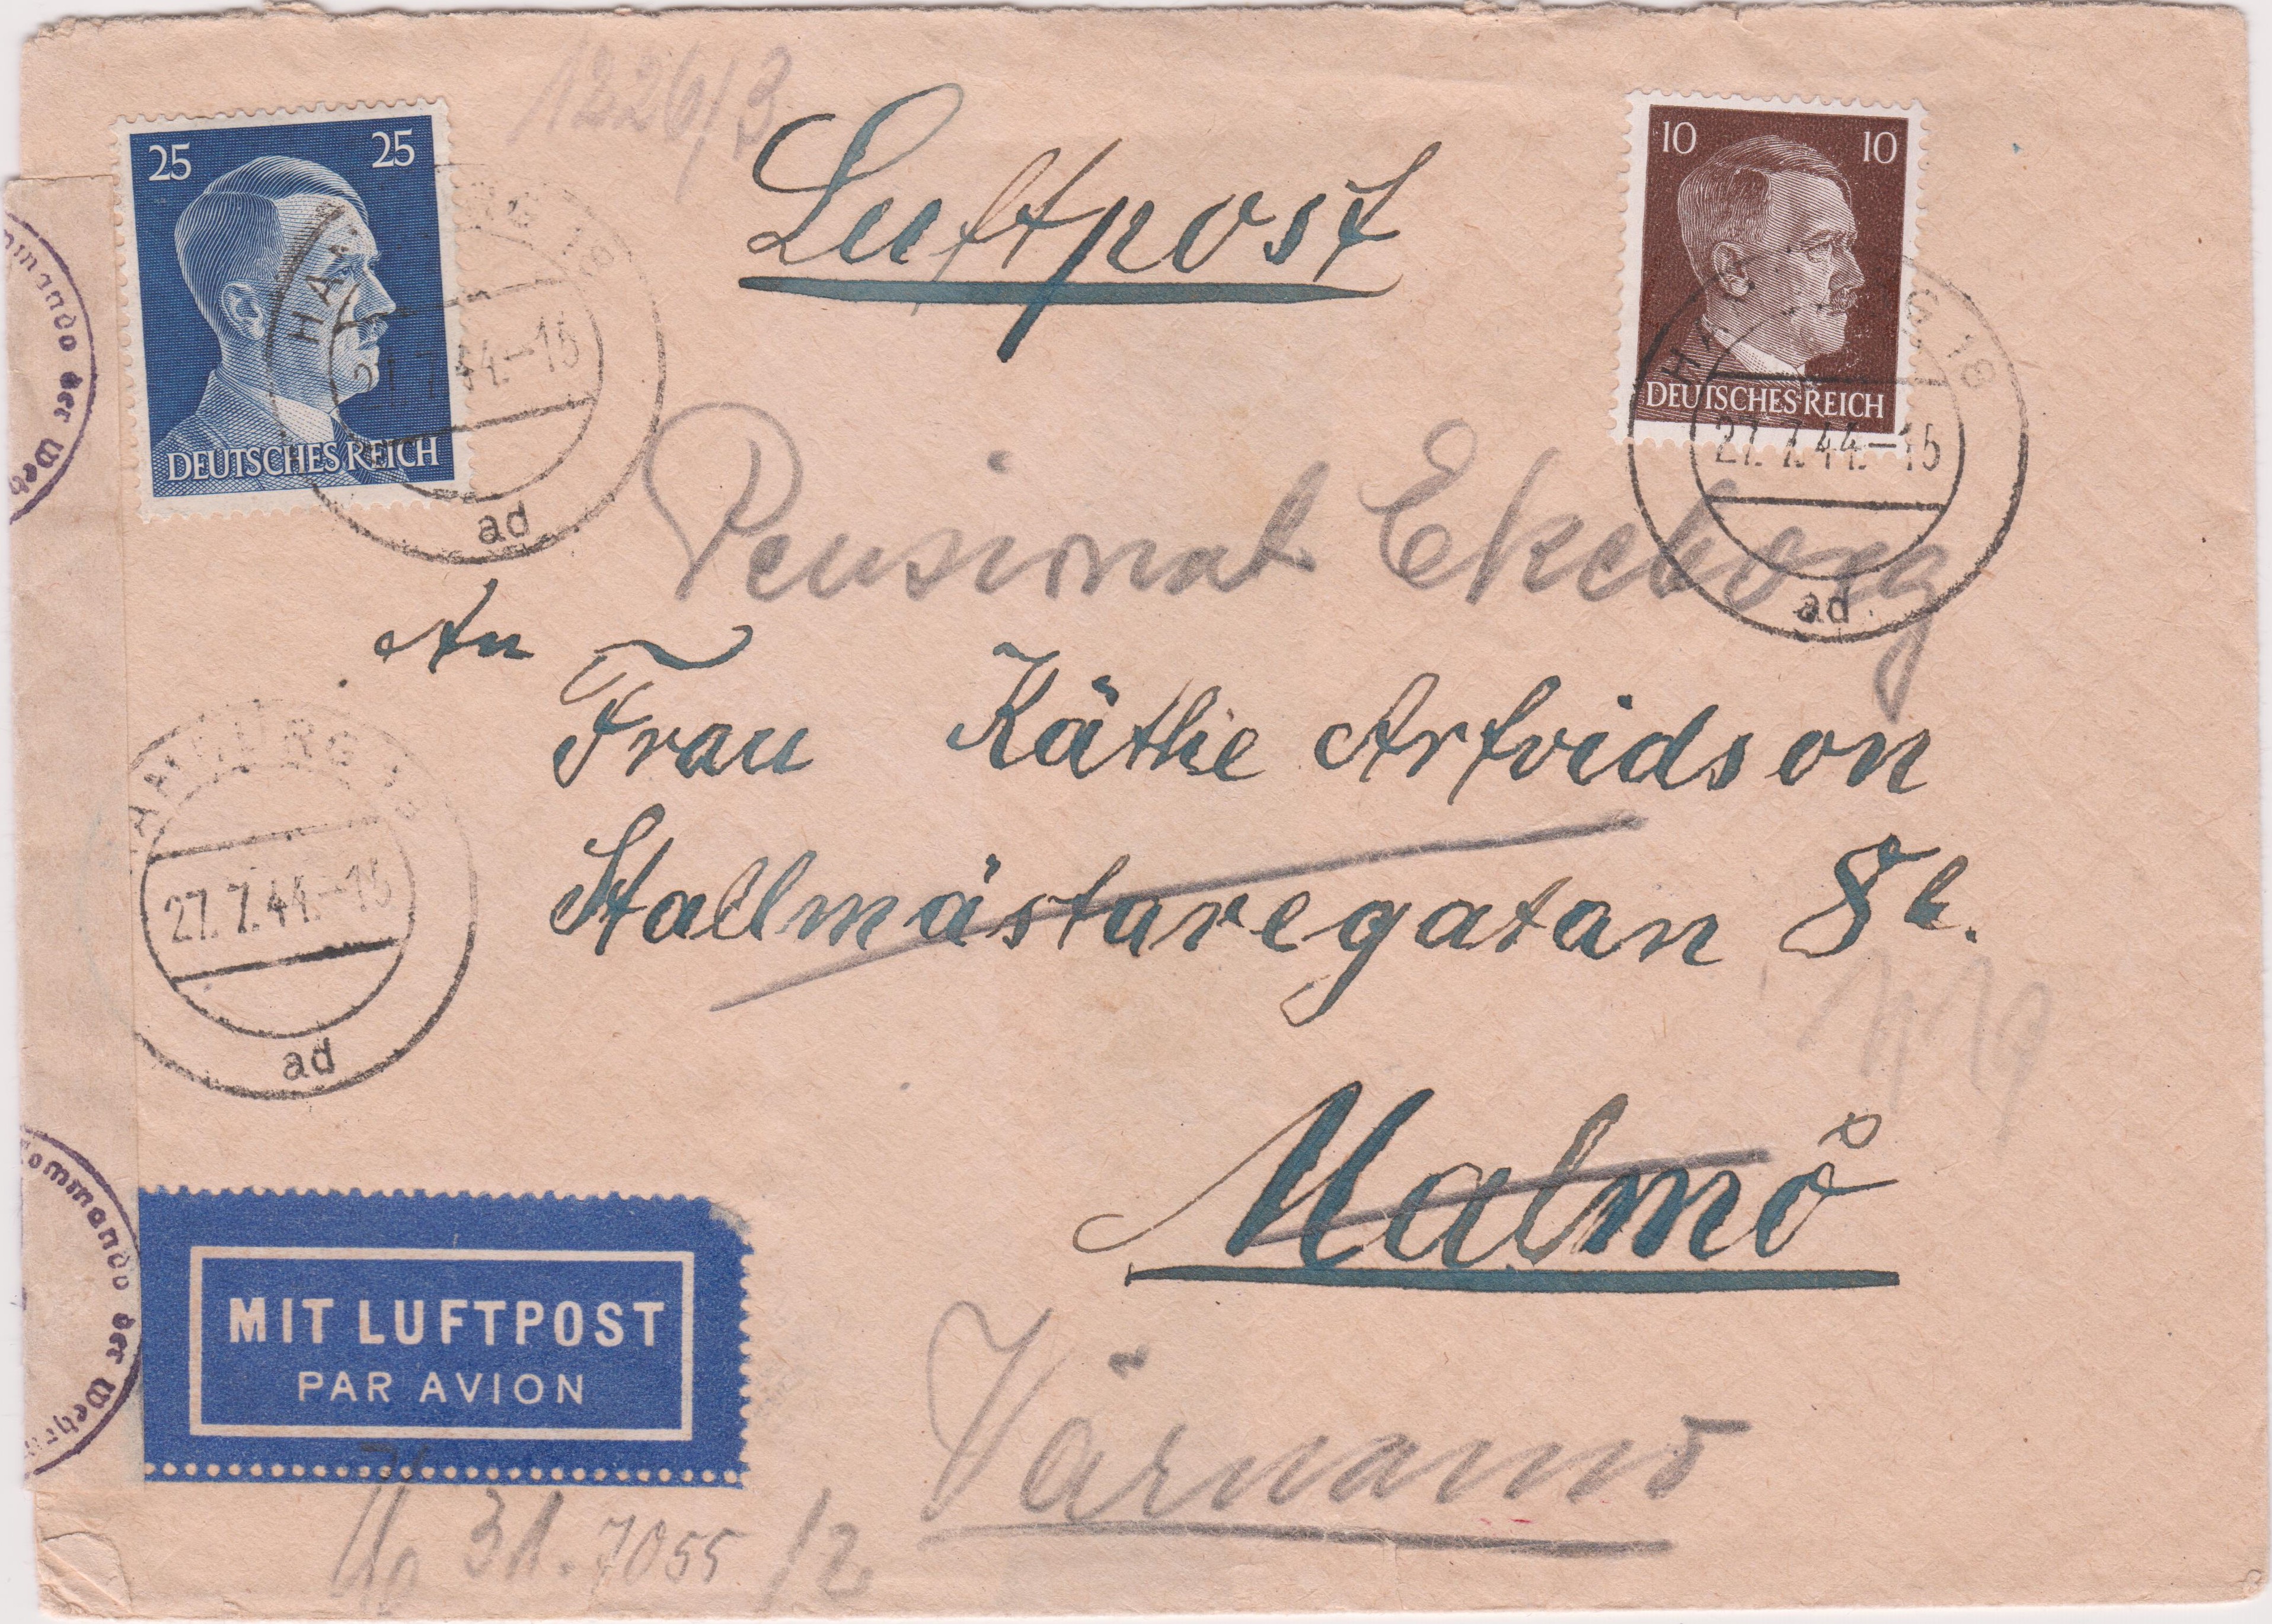 1226/3
Luftpost
25 25
DEUTSCHES REICH
10 10
DEUTSCHES REICH
HAMBURG 18
27.7.44.-15
ad
HAMBURG 18
27.7.44.-15
ad
Pensionat Ekeborg
An
Frau Käthe Arfvidson
Stallmästaregatan 8 b.
HAMBURG 18
27.7.44.-15
ad
Malmö
Värnamo
MIT LUFTPOST
PAR AVION
31. 7055 /2
mmando der Weh
Kommando der Wehrm